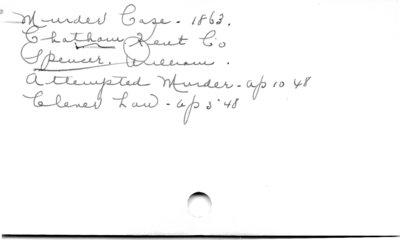 Murder Case - 1863.
Chatham Kent Co
Spencer, William.
Attempted Murder - ap 10 48
Clever Law - ap 3 '48